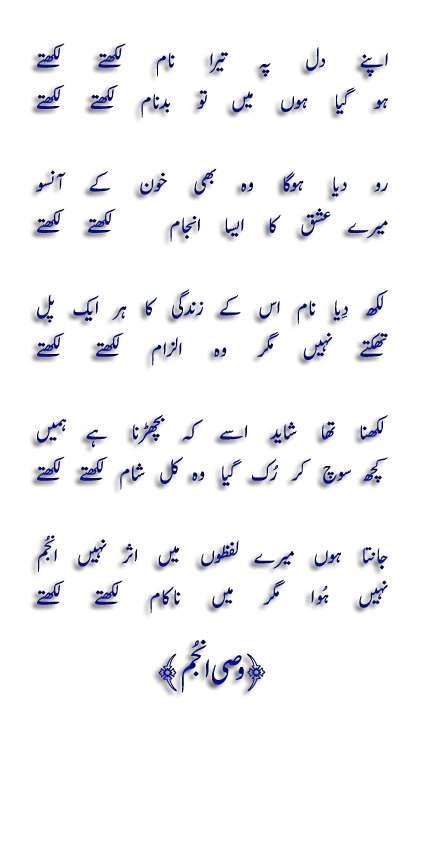 اپنے دل پہ تیرا نام لکھتے لکھتے
ہو گیا ہوں میں تو بدنام لکھتے لکھتے
رو دیا ہوگا وہ بھی خون کے آنسو
میرے عشق کا ایسا انجام لکھتے لکھتے
لکھ دِیا نام اس کے زندگی کا ہر ایک پل
تھکتے نہیں مگر وہ الزام لکھتے لکھتے
لکھنا تھا شاید اسے کہ بچھڑنا ہے ہمیں
کچھ سوچ کر رُک گیا وہ کل شام لکھتے لکھتے
جانتا ہوں میرے لفظوں میں اثر نہیں انجُم
نہیں ہُوا مگر میں ناکام لکھتے لکھتے
﴿وصی انجُم﴾